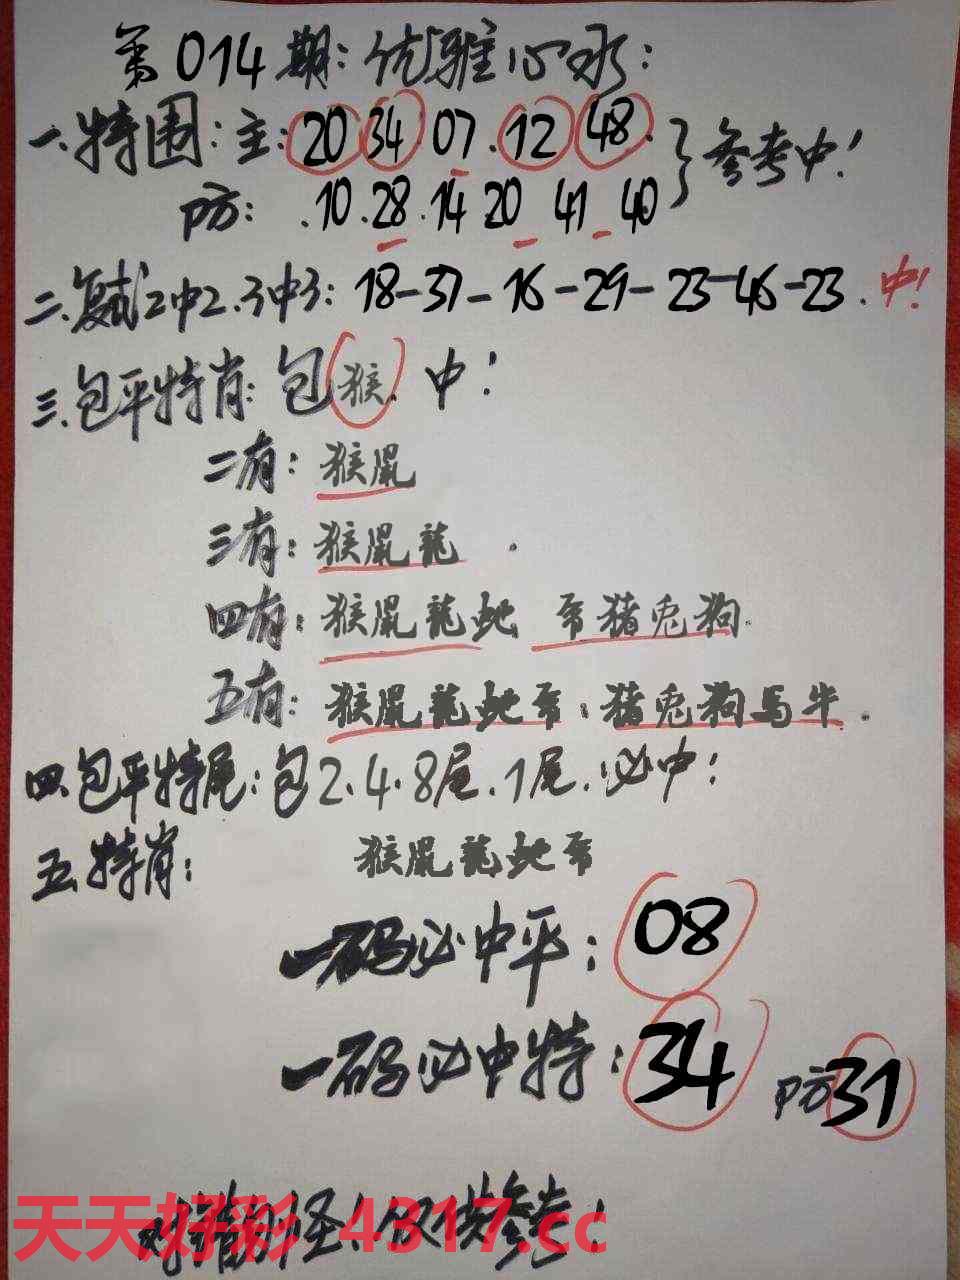 第014期:优雅心水:
一.特围:主:20 34.07.12 48. }参考中!
防:.10.28.14 20 41 40
二.复试2中2.3中3:18-37-16-29-23-46-23.中!
三.包平特肖:包猴.中!
二有:猴鼠
三有:猴鼠龍.
四有:猴鼠龍蛇 羊猪兔狗.
五有:猴鼠龍蛇羊:猪兔狗马牛.
四.包平特尾:包2.4.8尾.1尾.必中!
五.特肖:猴鼠龍蛇羊
一码必中平:08
一码必中特:34 防31
对错别怪!仅供参考!
天天好彩 4317.cc